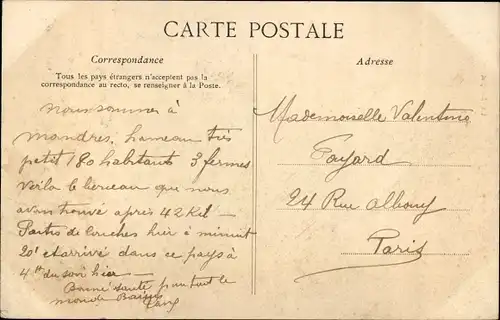 CARTE POSTALE
Correspondance
Tous les pays étrangers n'acceptent pas la
correspondance au recto, se renseigner à la Poste.
nous sommes à
Mondres, hameau très
petit 180 habitants 3 fermes
Voila le berceau que nous
avons trouvé après 42 Kil
Partis de Couches hier à minuit
20' et arrivé dans ce pays à
4 du soir hier
Bonne santé pour tout le
monde Baisers
Adresse
Mademoiselle Valentine
Fayard
24 Rue Albouy
Paris